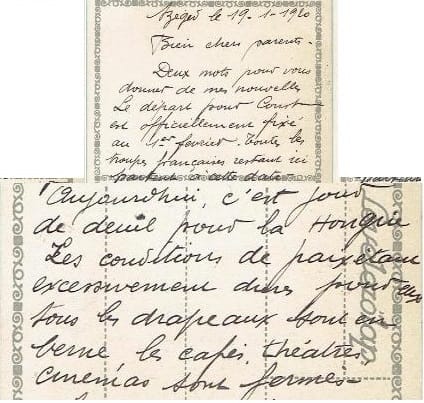 Szeged le 19-1-1920
Bien chers parents-
Deux mots pour vous
donner de mes nouvelles
Le départ pour Const
est officiellement fixé
au 1er février. toutes les
troupes françaises restant ici
partent à cette date
Aujourd'hui, c'est jour
de deuil pour la Hongrie
Les conditions de paix étant
excessivement dures pour elle
tous les drapeaux sont en
berne les cafés, théâtres
cinémas sont fermés-